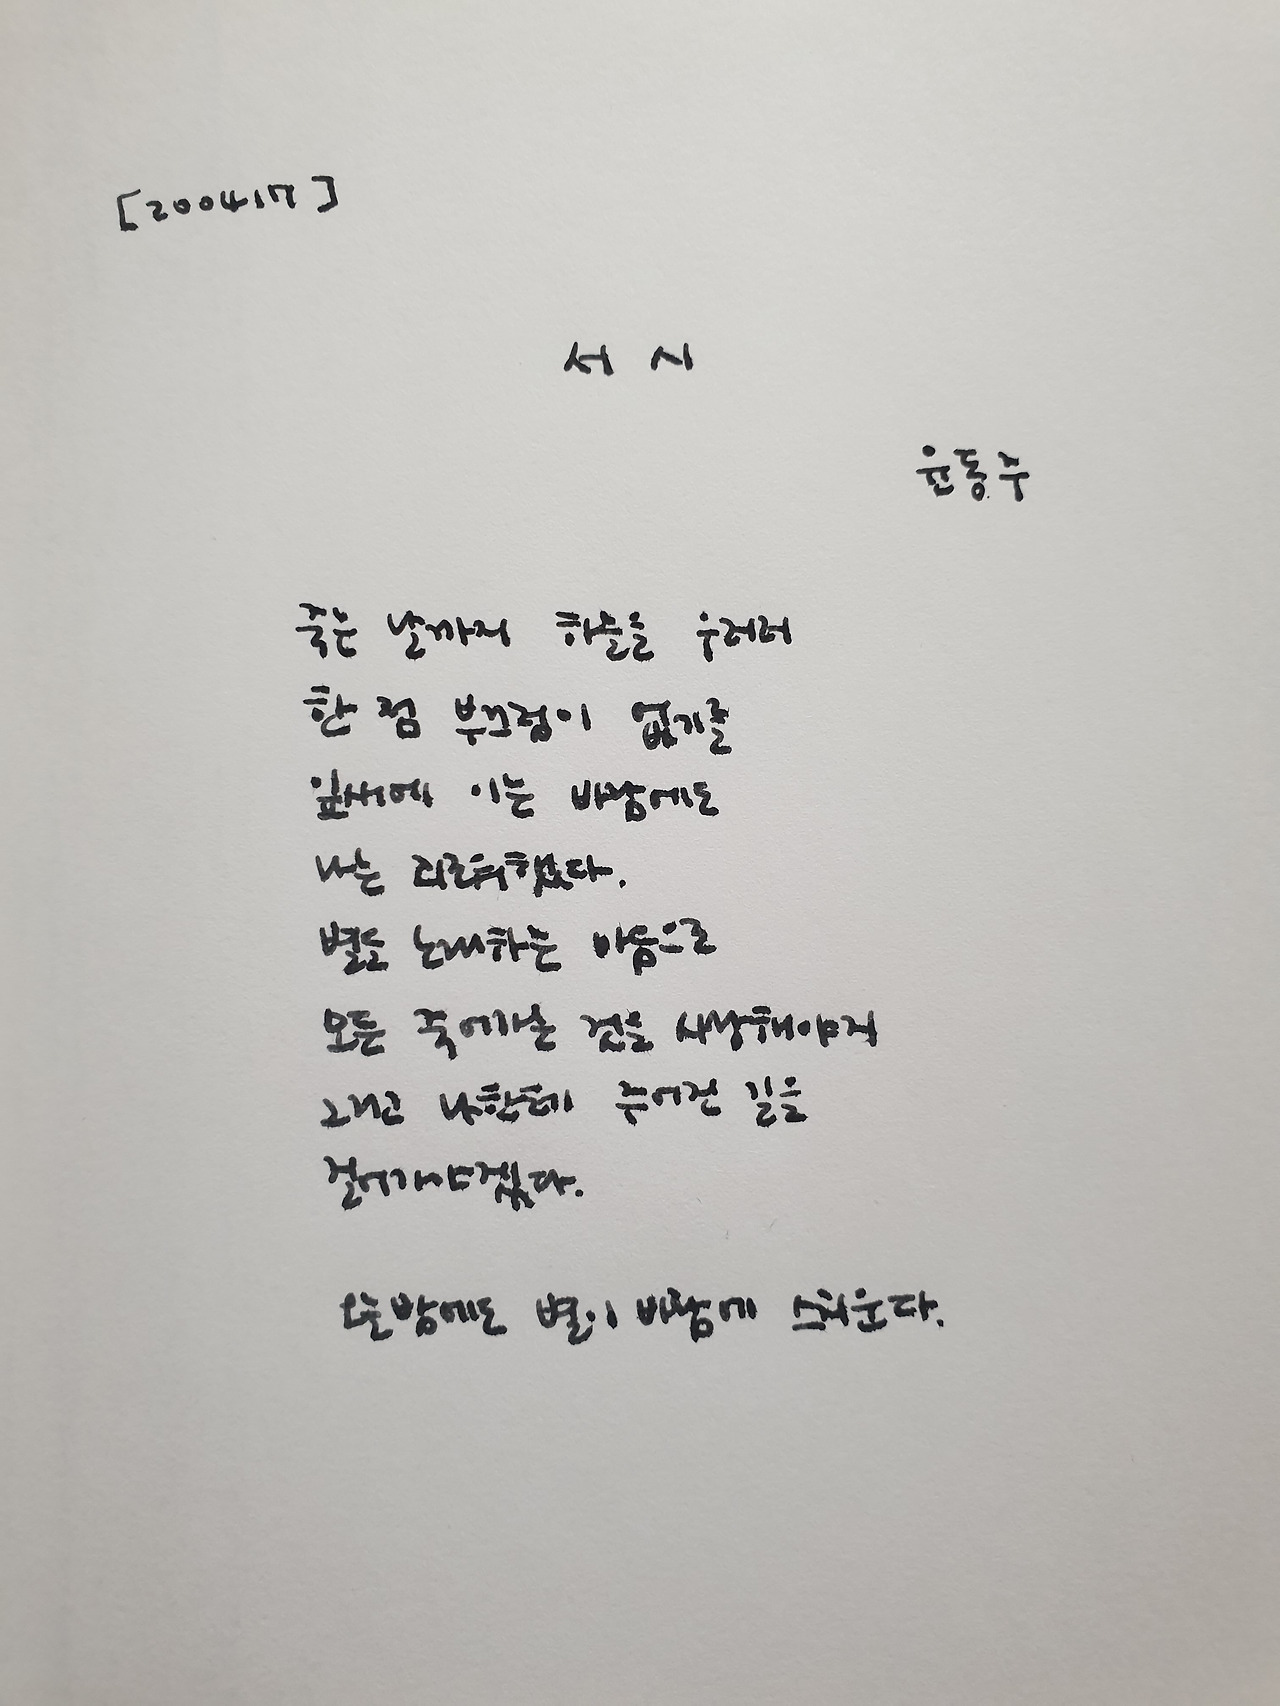 [200417]
서 시
윤동주
죽는 날까지 하늘을 우러러
한 점 부끄럼이 없기를
잎새에 이는 바람에도
나는 괴로워했다.
별을 노래하는 마음으로
모든 죽어가는 것을 사랑해야지
그리고 나한테 주어진 길을
걸어가야겠다.
오늘밤에도 별이 바람에 스치운다.